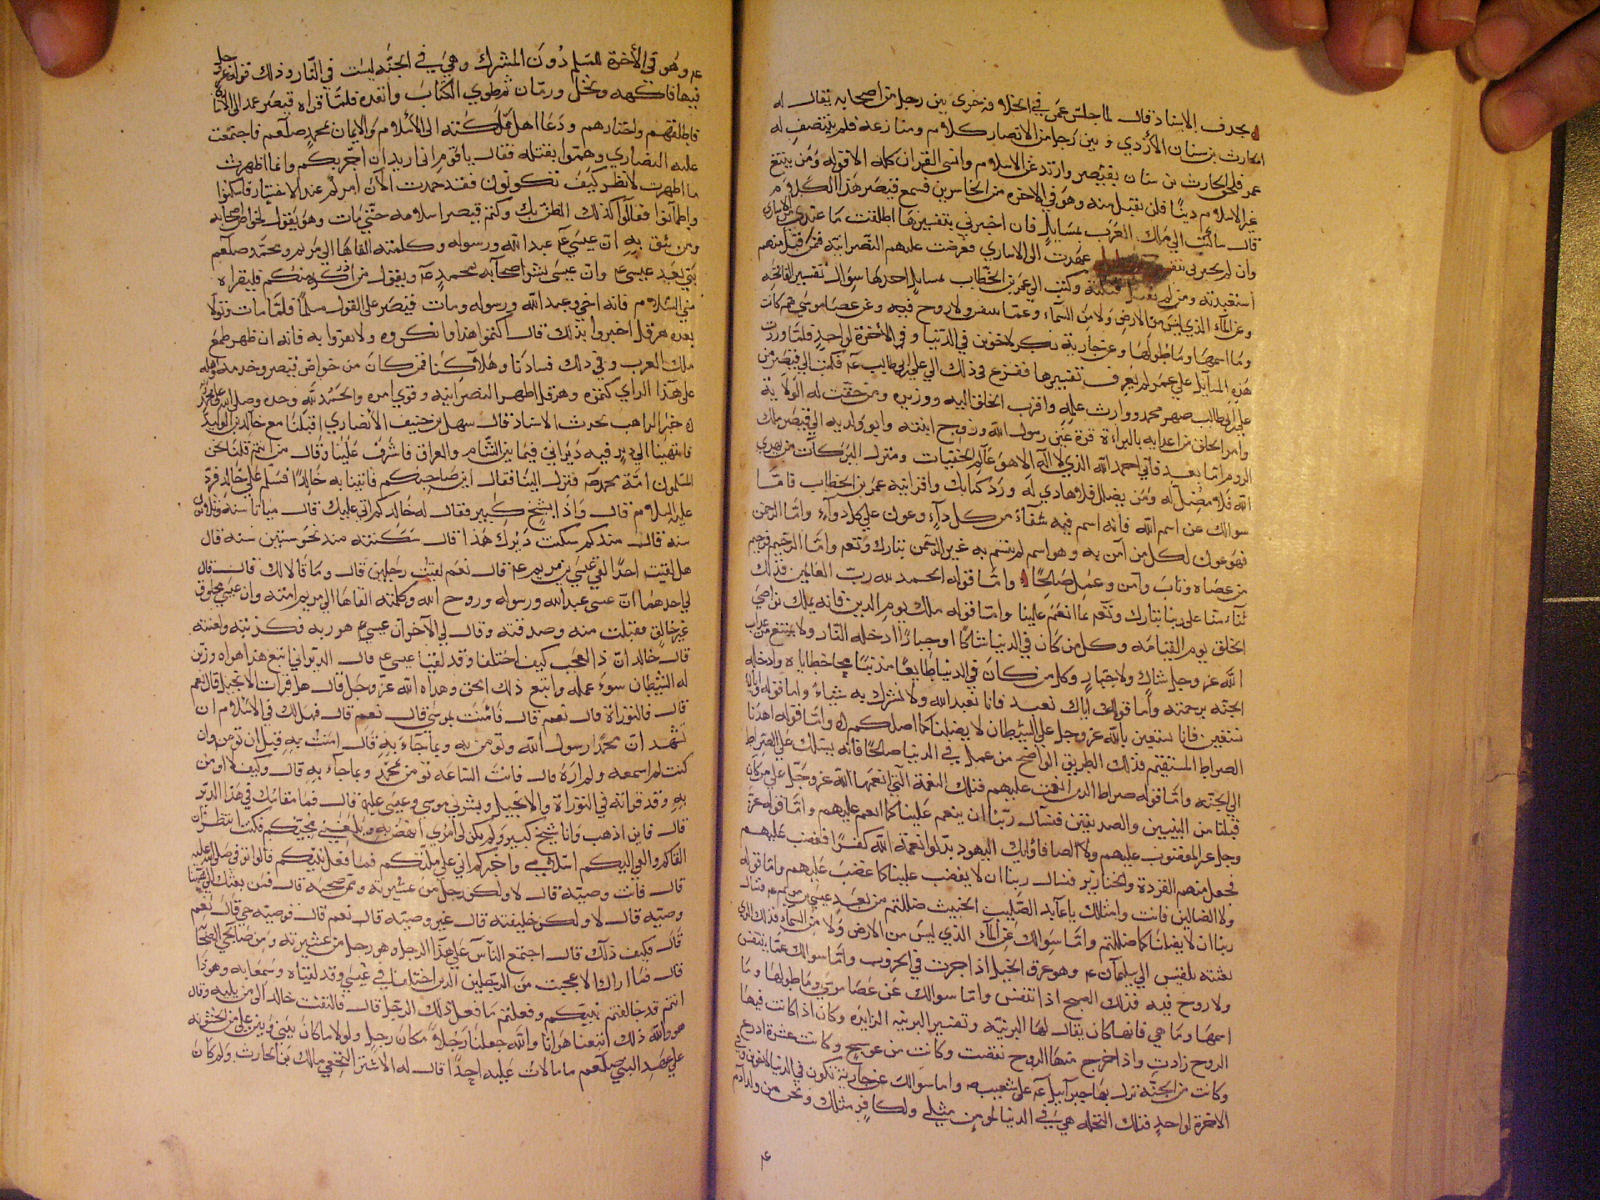 بحذف الاسناد قال لما جلس عمر في الخلافة جرى بين رجل من اصحابه يقال له
الحارث بن سنان الأزدي وبين رجل من الانصار كلام ومنازعة فلم ينتصف له
عمر فلحق الحارث بن سنان بقيصر وارتد عن الاسلام ونسى القران كله الا قوله ومن يبتغ
غير الاسلام دينا فلن يقبل منه وهو في الاخرة من الخاسرين فسمع قيصر هذا الكلام
قال سأكتب الى ملك العرب بمسايل فان اخبرني بتفسيرها اطلقت من عندي من الاسارى
وان لم يخبرني عمدت الى الاسارى فعرضت عليهم النصرانية فمن قبل منهم
استعبدته ومن لم يقبل قتلته وكتب الى عمر بن الخطاب بمسايل احدها سؤال تفسير الفاتحة
وعن الماء الذي ليس من الارض ولا من السماء وعما يتنفس ولا روح فيه وعن عصا موسى مم كانت
وما اسمها وما طولها وعن جارية بكر لاخوين في الدنيا وفي الآخرة لواحد فلما وردت
هذه المسايل على عمر لم يعرف تفسيرها ففزع في ذلك الى علي بن ابي طالب عم فكتب الى قيصر من
علي بن ابي طالب صهر محمد ووارث علمه واقرب الخلق اليه ووزيره ومن حقت له الولاية
وامر الخلق من اعدايه بالبراءة قرة عين رسول الله وزوج ابنته وابو ولديه الى قيصر ملك
الروم اما بعد فاني احمد الله الذي لا اله الا هو عالم الخفيات ومنزل البركات من يهدي
الله فلا مضل له ومن يضلل فلا هادي له ورد كتابك واقرانيه عمر بن الخطاب فاما
سوالك عن اسم الله فانه اسم فيه شفاء من كل داء وعون على كل دواء واما الرحمن
فهو عون لكل من آمن به وهو اسم لم يتسم به غير الرحمن تبارك وتعالى واما الرحيم فرحيم
من عصاه وتاب وآمن وعمل صالحا واما قوله الحمد لله رب العالمين فذلك
ثناء منا على ربنا تبارك وتعالى بما انعم علينا واما قوله ملك يوم الدين فانه يملك نواصي
الخلق يوم القيامة وكل من كان في الدنيا شاكا او جبارا ادخله النار ولا يمتنع من عذاب
الله عز وجل شاك ولا جبار وكل من كان في الدنيا طايعا مذنبا محا خطاياه وادخله
الجنة برحمته واما قوله اياك نعبد فانا نعبد الله ولا نشرك به شيئا واما قوله واياك
نستعين فانا نستعين بالله عز وجل على الشيطان لا يضلنا كما اضلكم واما قوله اهدنا
الصراط المستقيم فذلك الطريق الواضح من عمل في الدنيا صالحا فانه يسلك على الصراط
الى الجنة واما قوله صراط الذين انعمت عليهم فتلك النعمة التي انعمها الله عز وجل على من كان
قبلنا من النبيين والصديقين فنسأل ربنا ان ينعم علينا كما انعم عليهم واما قوله عز
وجل غير المغضوب عليهم ولا الضالين فاوليك اليهود بدلوا نعمة الله كفرا فغضب عليهم
فجعل منهم القردة والخنازير فنسال ربنا ان لا يغضب علينا كما غضب عليهم واما قوله
ولا الضالين فانت وامثالك يا عابد الصليب الخبيث ضللتم من بعد عيسى بن مريم عم فنسال
ربنا ان لا يضلنا كما ضللتم واما سوالك عن الماء الذي ليس من الارض ولا من السماء فذلك الذي
بعثته بلقيس الى سليمان عم وهو عرق الخيل اذا جرت في الحروب واما سوالك عما يتنفس
ولا روح فيه فذلك الصبح اذا تنفس واما سوالك عن عصا موسى وما طولها وما
اسمها وما هي فانها كان يقال لها البرنية وتفسير البرنية الزايدة وكان اذا كانت فيها
الروح زادت واذا خرج منها الروح نقصت وكانت من عوسج وكانت عشرة اذرع
وكانت من الجنة نزل بها جبرائيل عم على شعيب واما سوالك عن جارية تكون في الدنيا لاخوين وفي
الآخرة لواحد فتلك النخلة هي في الدنيا لمومن مثلي ولكافر مثلك ونحن من ولد ادم
عم وهو في الأخرة للمسلم دون المشرك وهي في الجنة ليست في النار وذلك قوله عز وجل
فيها فاكهة ونخل ورمان ثم طوى الكتاب وانفذه فلما قراه قيصر عمد الى الاسارى
فاطلقهم واختارهم ودعا اهل مملكته الى الاسلام والايمان بمحمد صلعم فاجتمعت
عليه النصارى وهموا بقتله فقال يا قوم اني اريد ان اجربكم وانما اظهرت
ما اظهرت لانظر كيف تكونون فقد حمدت الآن امركم عند الاختبار فاسكنوا
واطمأنوا فقالوا كذلك الظن بك وكتم قيصر اسلامه حتى مات وهو يقول لخواص اصحابه
ومن يثق به ان عيسى عم عبد الله ورسوله وكلمته القاها الى مريم ومحمد صلعم
نبي بعد عيسى عم وان عيسى بشر اصحابه بمحمد عم ويقول من ادركه منكم فليقراه
مني السلام فانه اخي وعبد الله ورسوله ومات قيصر على القول مسلما فلما مات وتولى
بعده هرقل اخبروه بذلك قال اكتموا هذا وانكروه ولا تقروا به فانه ان ظهر طمع
ملك العرب وفي ذلك فسادنا وهلاكنا فمن كان من خواص قيصر وخدمه واهله
على هذا الرأي كتموه وهرقل اظهر النصرانية وقوي امره والحمد لله وحده وصلى الله على محمد
خبر الراهب بحذف الاسناد قال سهل بن حنيف الأنصاري اقبلنا مع خالد بن الوليد
فانتهينا الى دير فيه ديراني فيما بين الشام والعراق فاشرف علينا وقال من انتم قلنا نحن
المسلمون امة محمد فنزل الينا فقال اين صاحبكم فاتينا به خالدا فسلم على خالد فرد
عليه السلام قال واذا شيخ كبير فقال له خالد كم اتى عليك قال مايتا سنة وثلاثون
سنة قال منذ كم سكنت ديرك هذا قال سكنته منذ نحو ستين سنة قال
هل لقيت احدا لقي عيسى بن مريم عم قال نعم لقيت رجلين قال وما قالا لك قال قال
لي احدهما ان عيسى عبد الله ورسوله وروح الله وكلمته القاها الى مريم امته وان عيسى مخلوق
غير خالق فقبلت منه وصدقته وقال لي الآخر ان عيسى هو ربه فكذبته ولعنته
قال خالد ان ذا لعجب كيف اختلفا وقد لقيا عيسى عم قال الديراني اتبع هذا هواه وزين
له الشيطان سوء عمله واتبع ذلك الحق وهداه الله عز وجل قال هل قرات الانجيل قال نعم
قال فالتوراة قال نعم قال فآمنت بموسى قال نعم قال فهل لك في الاسلام ان
تشهد ان محمدا رسول الله وتومن به وبما جاء به قال امنت به قبل ان تومن وان
كنت لم اسمعه ولم اره قال فانت الساعة تومن بمحمد وبما جاء به قال وكيف لا اومن
به وقد قراته في التوراة والانجيل وبشرني موسى وعيسى عليه قال فما مقامك في هذا الدير
قال فاين اذهب وانا شيخ كبير ولم يكن لي امرؤ انهض به وبلغني مجيئكم فكنت انتظر ان
القاكم والقي اليكم اسلامي واخبركم اني على ملتكم فما فعل نبيكم قالوا توفي صلى الله عليه
قال فانت وصيه قال لا ولكن رجل من عشيرته وممن صحبه قال فمن بعثك الى هاهنا
وصيه قال لا ولكن خليفته قال غير وصيه قال نعم قال فوصيه حي قال نعم
قال وكيف ذلك قال اجتمع الناس على هذا الرجل وهو رجل من عشيرته ومن صالحي الصحابة
قال فما اراك الا اعجب من الرجلين الذين اختلفا في عيسى وقد لقياه وسمعا به وهوذا
انتم قد خالفتم نبيكم وفعلتم ما فعل ذلك الرجل قال فالتفت خالد الى من يليه وقال
هو والله ذلك اتبعنا هوانا والله جعلنا رجلا مكان رجل ولولا ما كان بيني وبين علي من الخشونة
على عهد النبي صلعم ما مالات عليه احدا قال له الاشتر النخعي مالك بن الحارث ولم كان